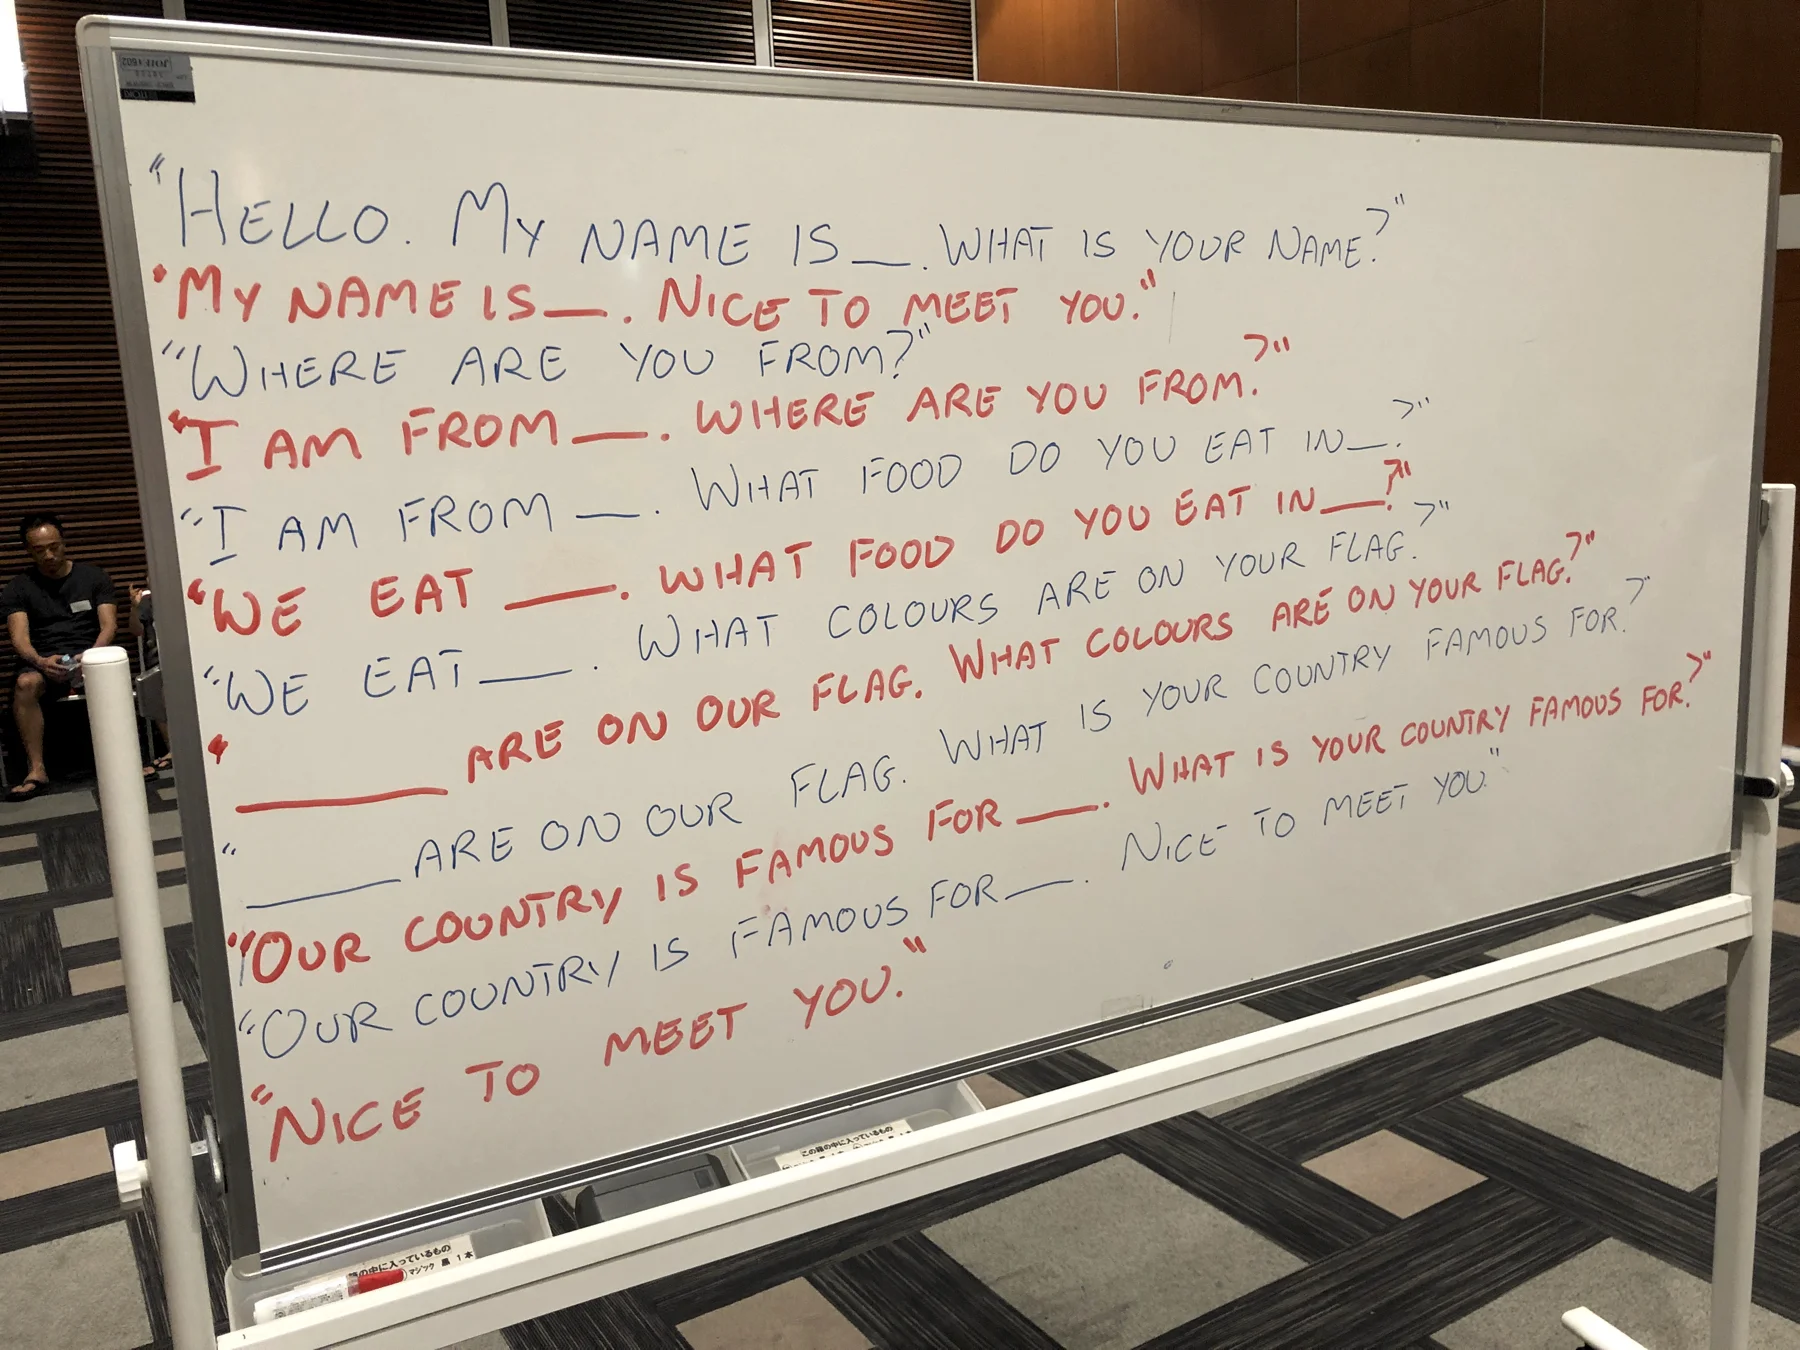 "HELLO. MY NAME IS __. WHAT IS YOUR NAME?"
"MY NAME IS __. NICE TO MEET YOU."
"WHERE ARE YOU FROM?"
"I AM FROM __. WHERE ARE YOU FROM?"
"I AM FROM __. WHAT FOOD DO YOU EAT IN __?"
"WE EAT __. WHAT FOOD DO YOU EAT IN __?"
"WE EAT __. WHAT COLOURS ARE ON YOUR FLAG?"
"____ ARE ON OUR FLAG. WHAT COLOURS ARE ON YOUR FLAG?"
"____ ARE ON OUR FLAG. WHAT IS YOUR COUNTRY FAMOUS FOR?"
"OUR COUNTRY IS FAMOUS FOR __. WHAT IS YOUR COUNTRY FAMOUS FOR?"
"OUR COUNTRY IS FAMOUS FOR __. NICE TO MEET YOU."
"NICE TO MEET YOU."
この箱の中に入っているもの
の中に入っているもの
マジック 黒 1本